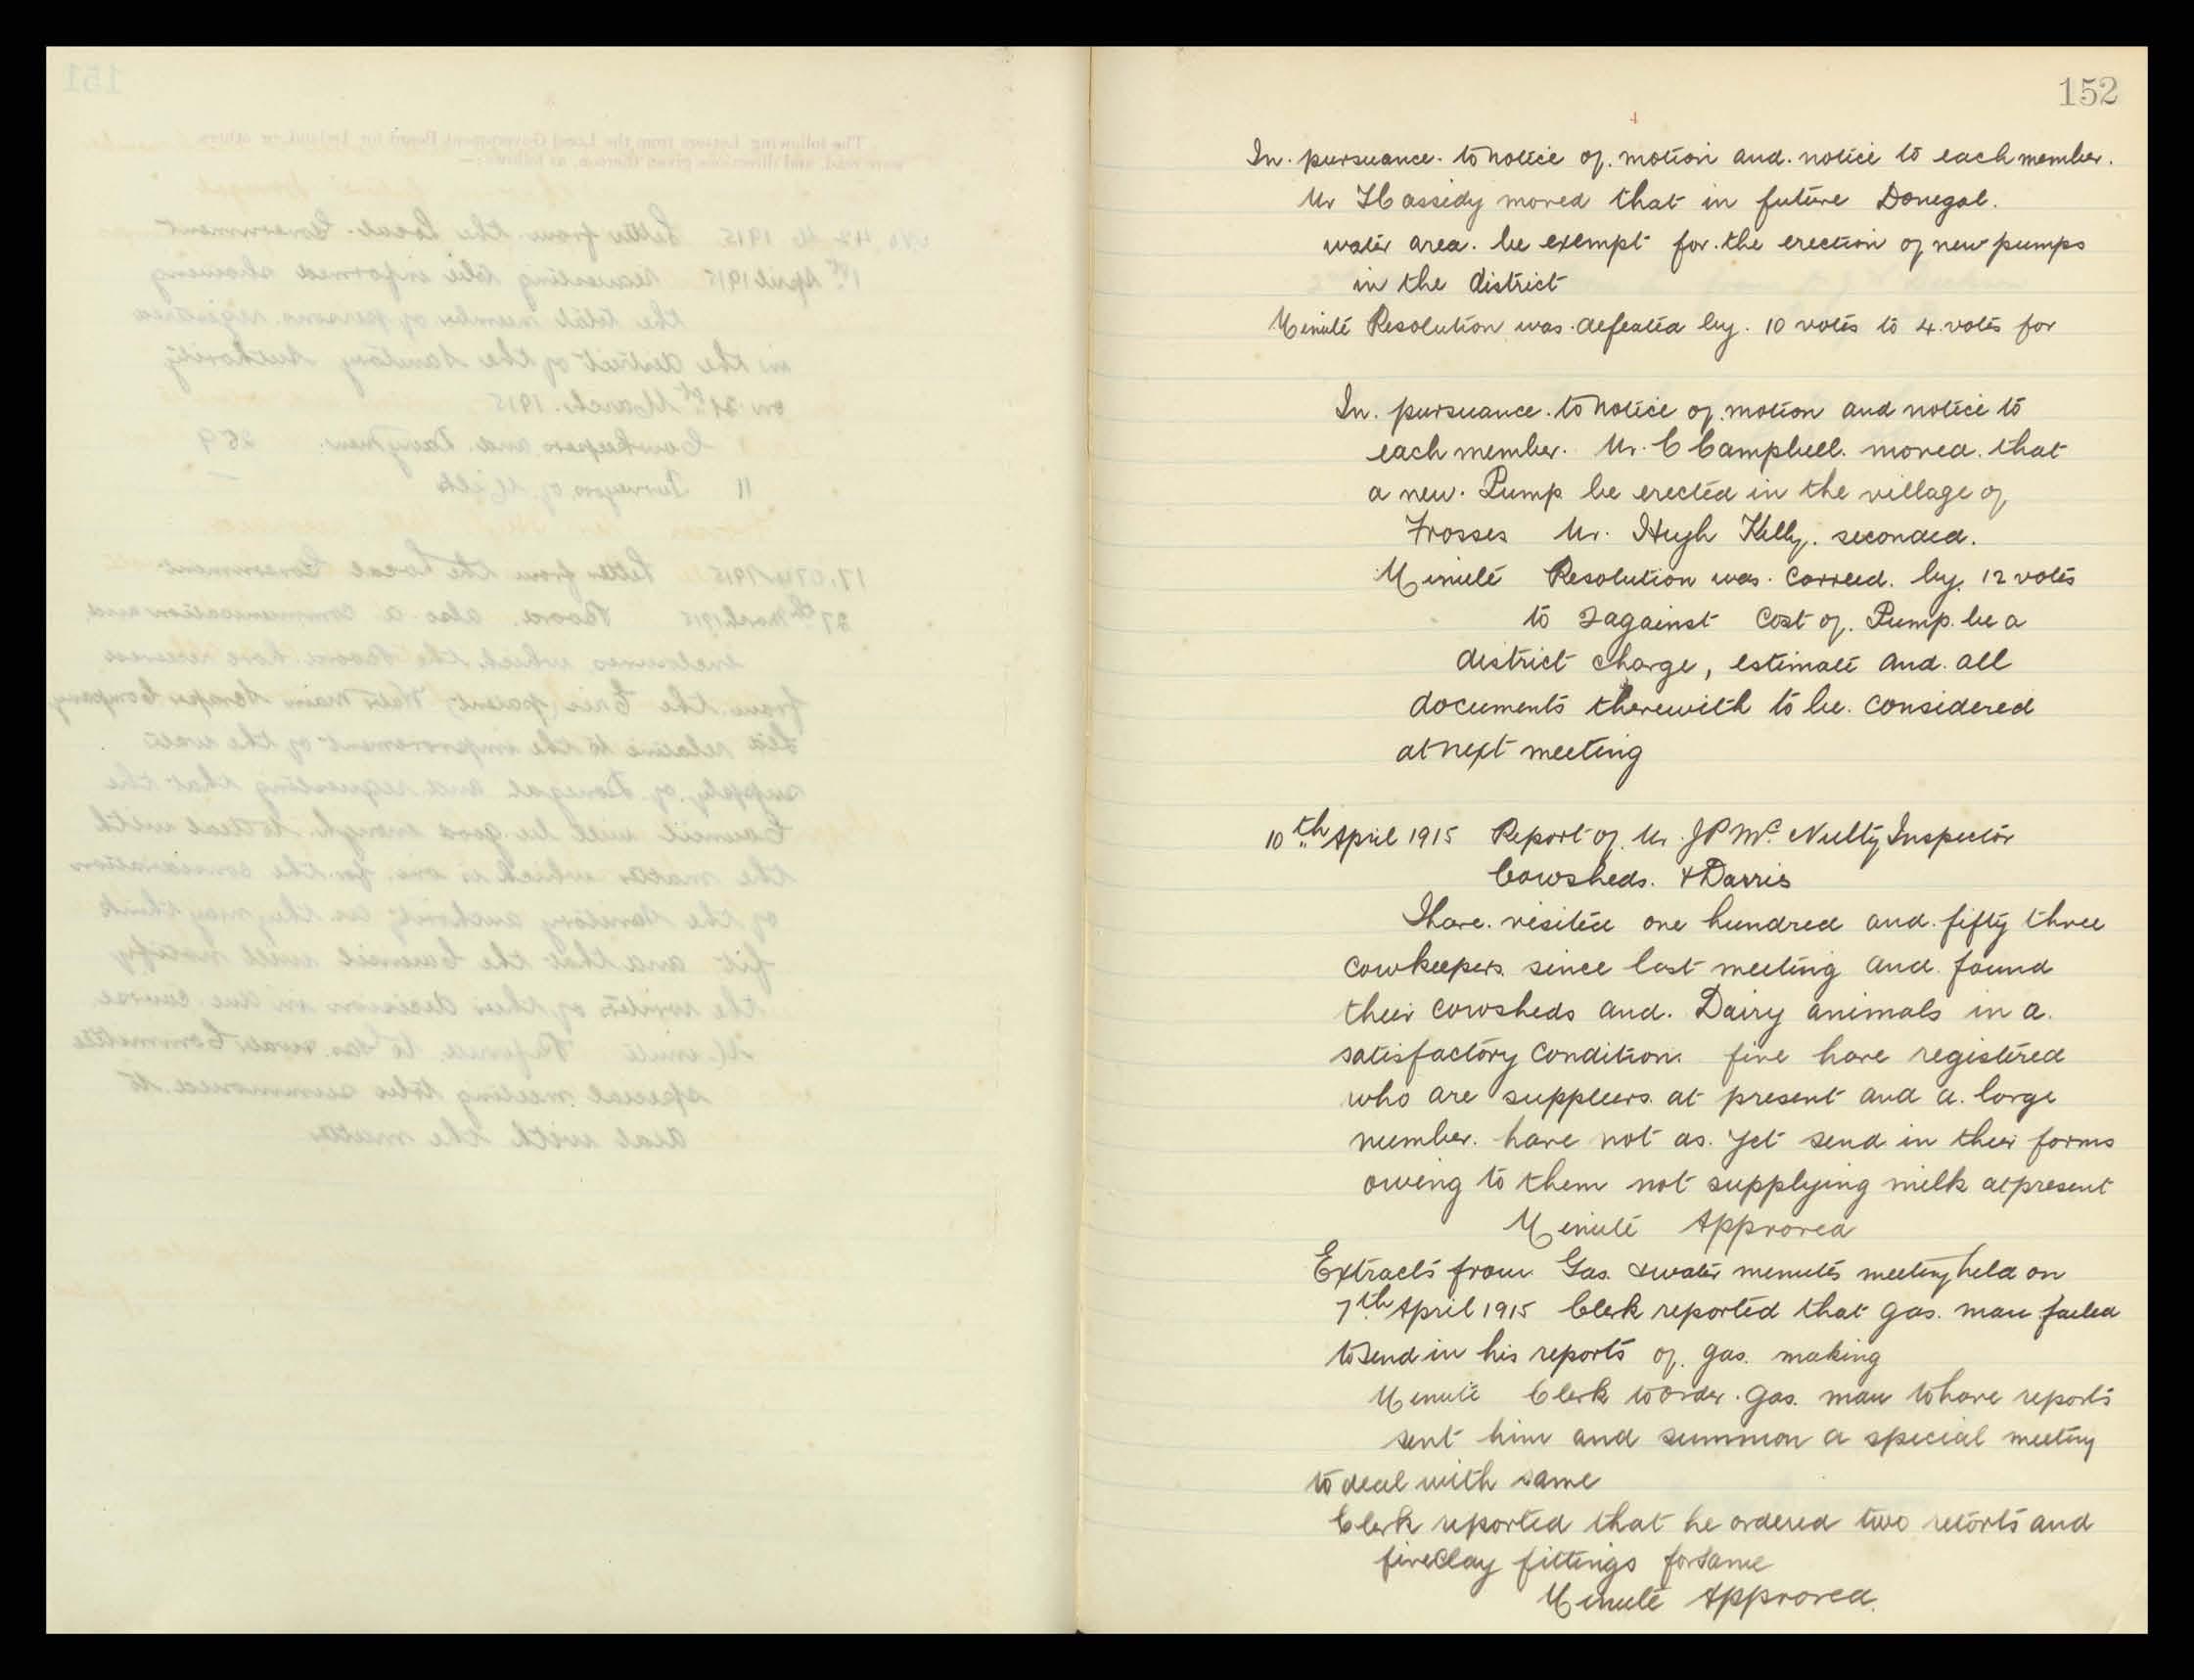 152
In pursuance to notice of motion and notice to each member.
Mr H Cassidy moved that in future Donegal
water area be exempt for the erection of new pumps
in the district
Minute Resolution was defeated by 10 votes to 4 votes for
In pursuance to notice of motion and notice to
each member. Mr. C Campbell moved that
a new Pump be erected in the village of
Frosses Mr. Hugh Kelly seconded.
Minute Resolution was carreed by 12 votes
to 2 against Cost of Pump be a
district charge, estimate and all
documents therewith to be considered
at next meeting
10th April 1915 Report of Mr J P Mc Nulty Inspector
Cowsheds & Darris
I have visited one hundred and fifty three
cowkeepers since last meeting and found
their cowsheds and Dairy animals in a
satisfactory condition five have registered
who are suppleers at present and a large
number have not as yet send in their forms
owing to them not supplying milk at present
Minute Approved
Extracts from Gas & water minutes meeting held on
7th April 1915 Clerk reported that gas man failed
to send in his reports of gas making
Minute Clerk to order gas man to have reports
sent him and summon a special meeting
to deal with same
Clerk reported that he ordered two retorts and
fireclay fittings for same
Minute Approved.